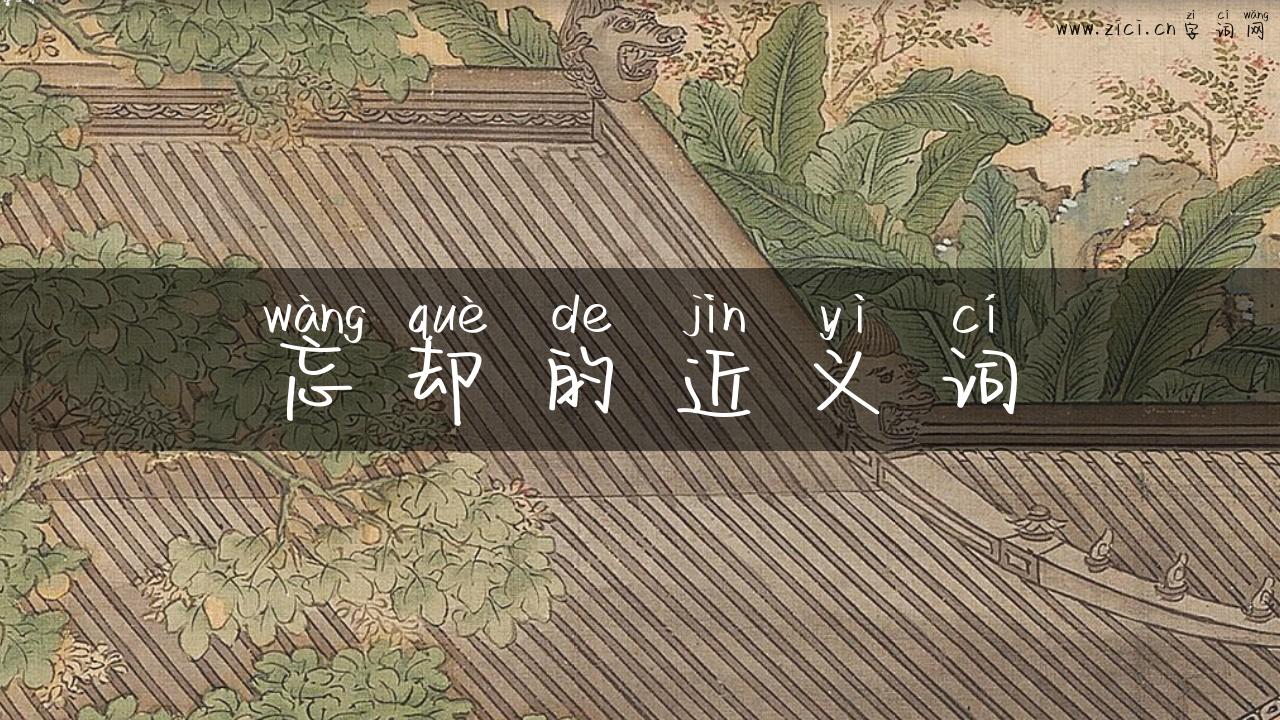 zì cí wǎng
www.zici.cn 字词网
wàng què de jìn yì cí
忘却的近义词